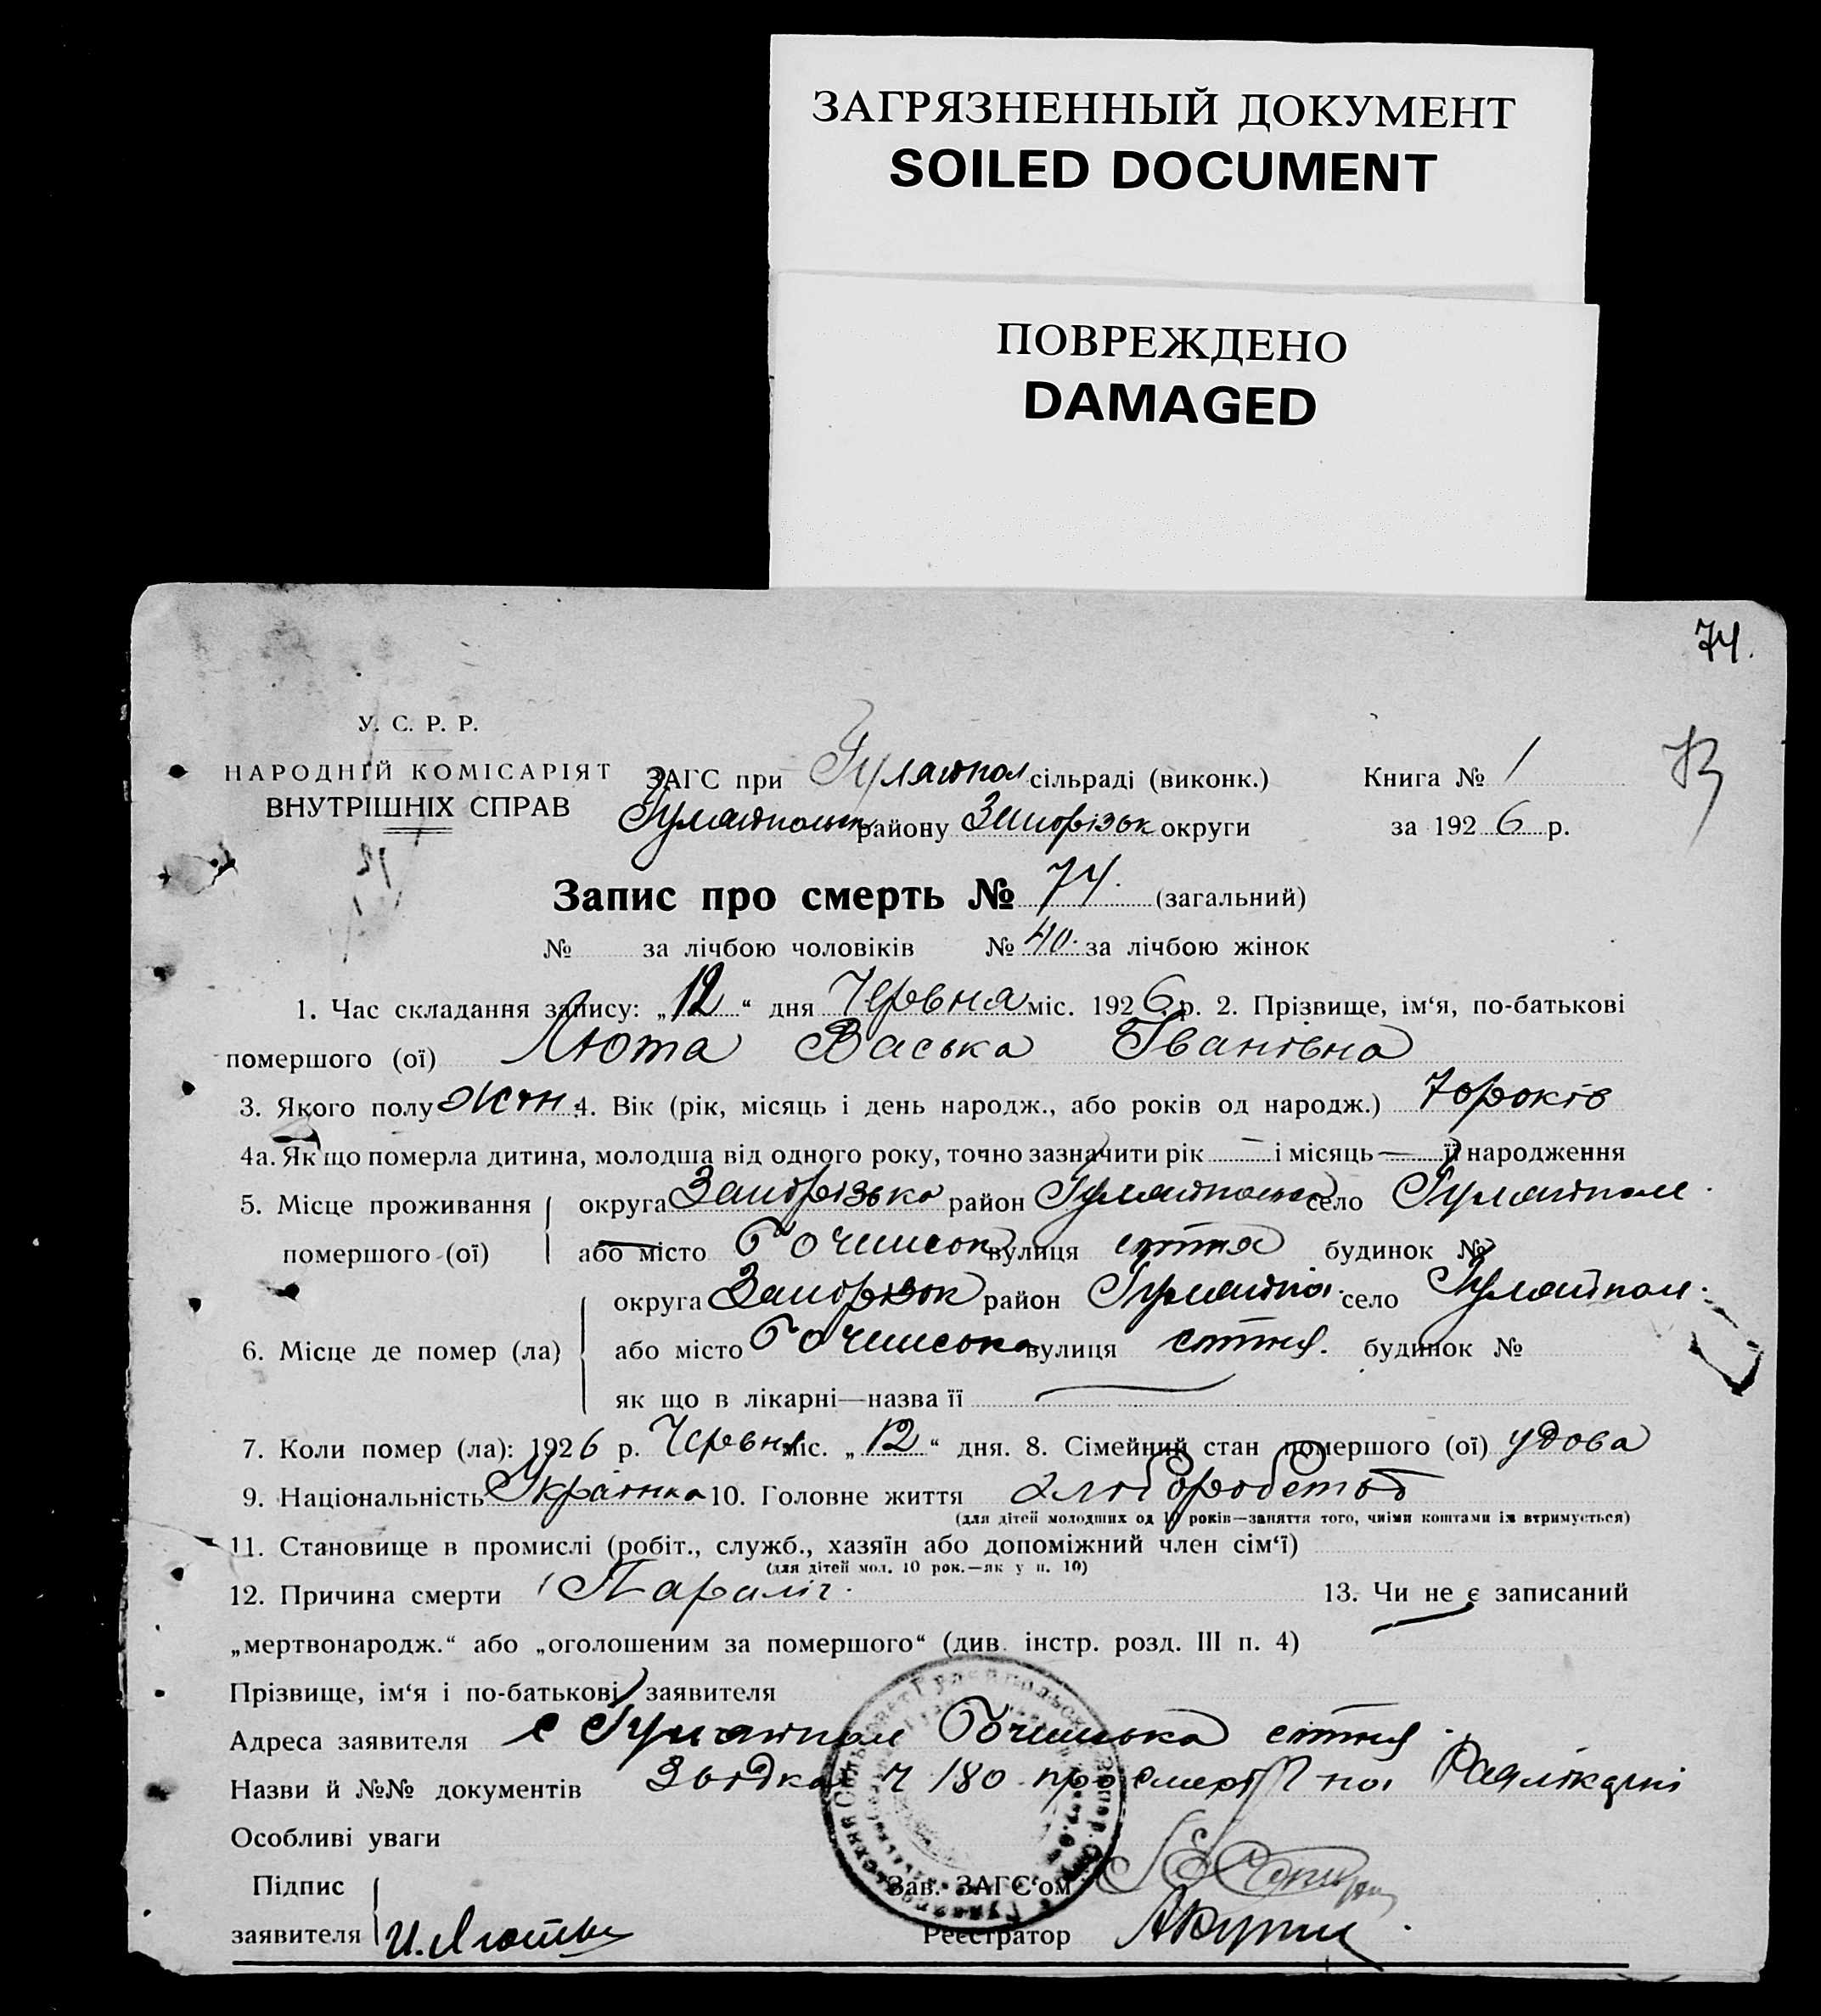 ЗАГРЯЗНЕННЫЙ ДОКУМЕНТ
SOILED DOCUMENT
ПОВРЕЖДЕНО
DAMAGED
74.
У. С. Р. Р.
НАРОДНІЙ КОМІСАРІЯТ
ВНУТРІШНІХ СПРАВ
ЗАГС при Гуляйпол сільраді (виконк.) Книга № 1
Гуляйпольськ району Запорізьк округи за 1926 р.
Запис про смерть № 74. (загальний)
№ за лічбою чоловіків № 40. за лічбою жінок
1. Час складання запису: „12“ дня Червня міс. 1926 р. 2. Прізвище, ім‘я, по-батькові
помершого (ої) Люта Васька Іванівна
3. Якого полу жін. 4. Вік (рік, місяць і день народж., або років од народж.) 70 років
4а. Як що померла дитина, молодша від одного року, точно зазначити рік — і місяць — її народження
5. Місце проживання помершого (ої) округа Запорізька район Гуляйпольськ село Гуляйполе.
або місто вулиця сотня будинок №
6. Місце де помер (ла) округа Запорізьк район Гуляйпо. село Гуляйполе.
або місто вулиця сотня. будинок №
як що в лікарні—назва її —
7. Коли помер (ла): 1926 р. Червня міс. „12“ дня. 8. Сімейний стан помершого (ої) удова
9. Національність Українка 10. Головне життя хліборобство
(для дітей молодших од 10 років—заняття того, чиїми коштами їх втримується)
11. Становище в промислі (робіт., служб., хазяїн або допоміжний член сім‘ї)
(для дітей мол. 10 рок.—як у п. 10)
12. Причина смерти Параліч. 13. Чи не є записаний
„мертвонародж.“ або „оголошеним за помершого“ (див. інстр. розд. III п. 4)
Прізвище, ім‘я і по-батькові заявителя
Адреса заявителя с Гуляйполе сотня.
Назви й №№ документів Звідка Ч 180 про смерть
Особливі уваги
Підпис Зав. ЗАГС‘ом
заявителя И. Лютый Реєстратор